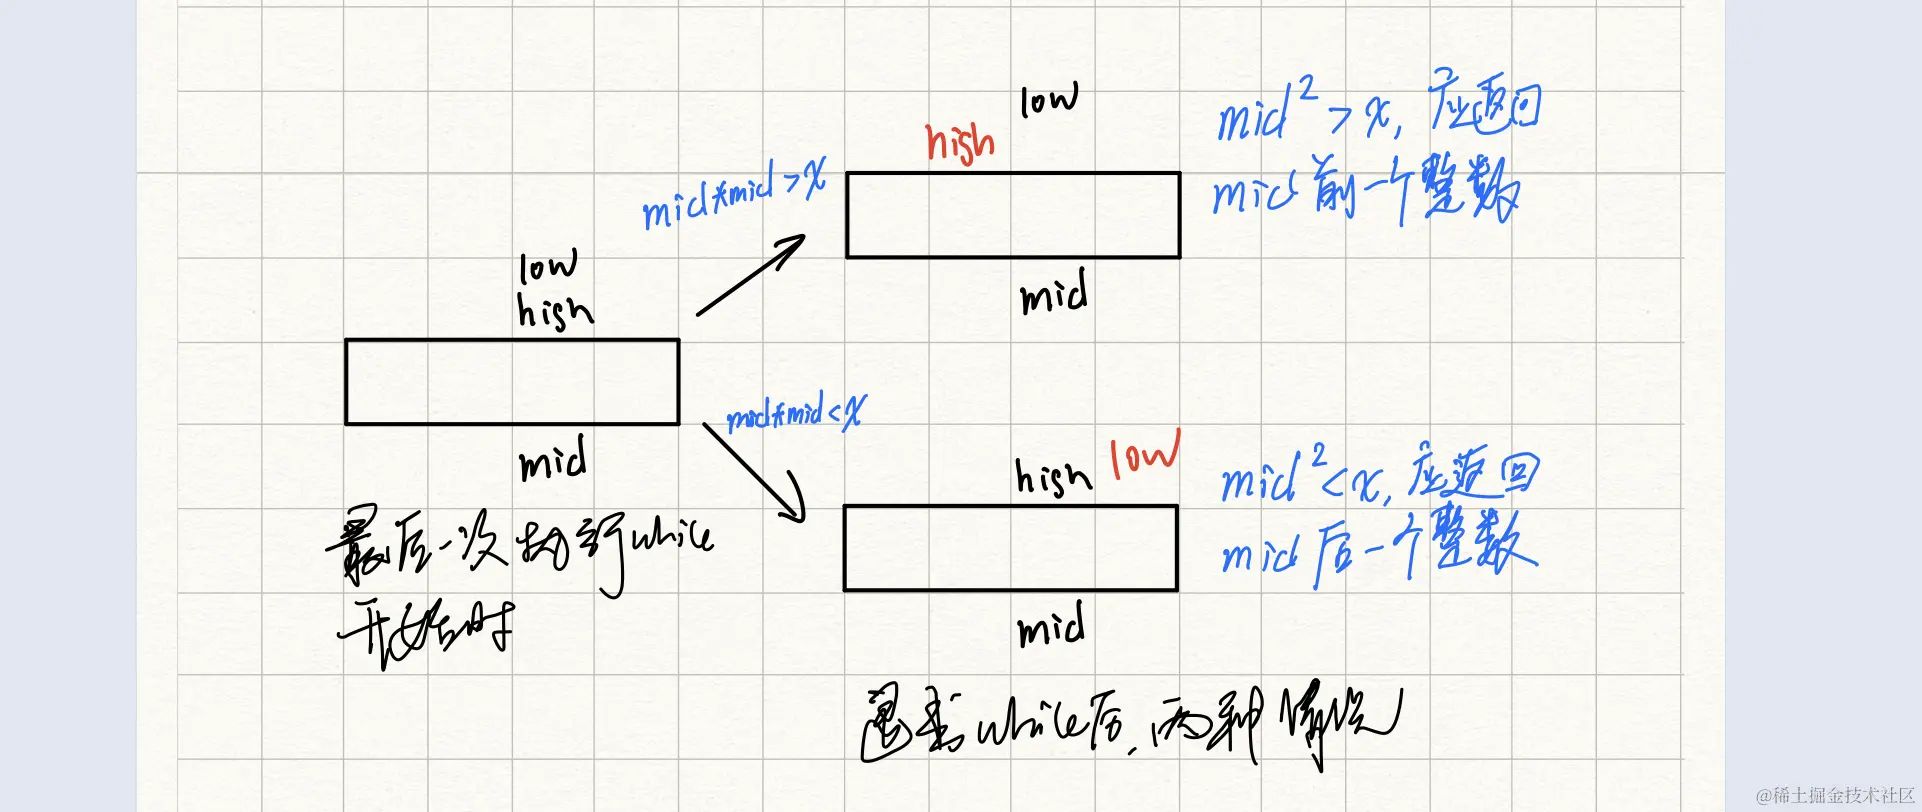 low
high
mid
最后一次执行while
开始时
mid*mid>x
low
high
mid
mid²>x, 应返回
mid前一个整数
mid*mid<x
high low
mid
mid²<x, 应返回
mid后一个整数
while后, 两种情况
@稀土掘金技术社区